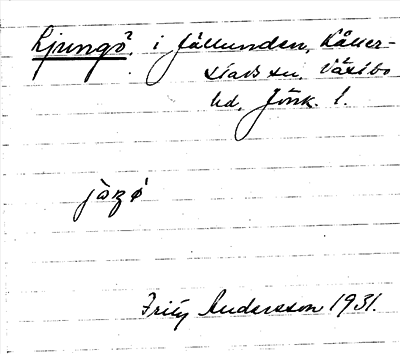 Ljungö, i Fällunden, Kåller-
stads sn, Västbo
hd, Jönk. l.
Fritz Andersson 1931.